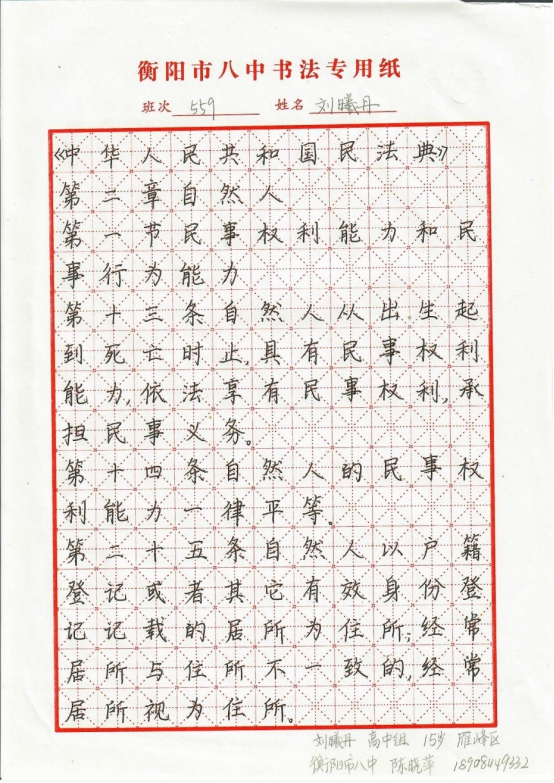 衡阳市八中书法专用纸
班次 559 姓名 刘曦丹
《中华人民共和国民法典》
第二章自然人
第一节民事权利能力和民
事行为能力
第十三条自然人从出生起
到死亡时止,具有民事权利
能力,依法享有民事权利,承
担民事义务。
第十四条自然人的民事权
利能力一律平等。
第二十五条自然人以户籍
登记或者其它有效身份登
记记载的居所为住所;经常
居所与住所不一致的,经常
居所视为住所。
刘曦丹 高中组 15岁 雁峰区
衡阳市八中 陈晓萍 18908449332